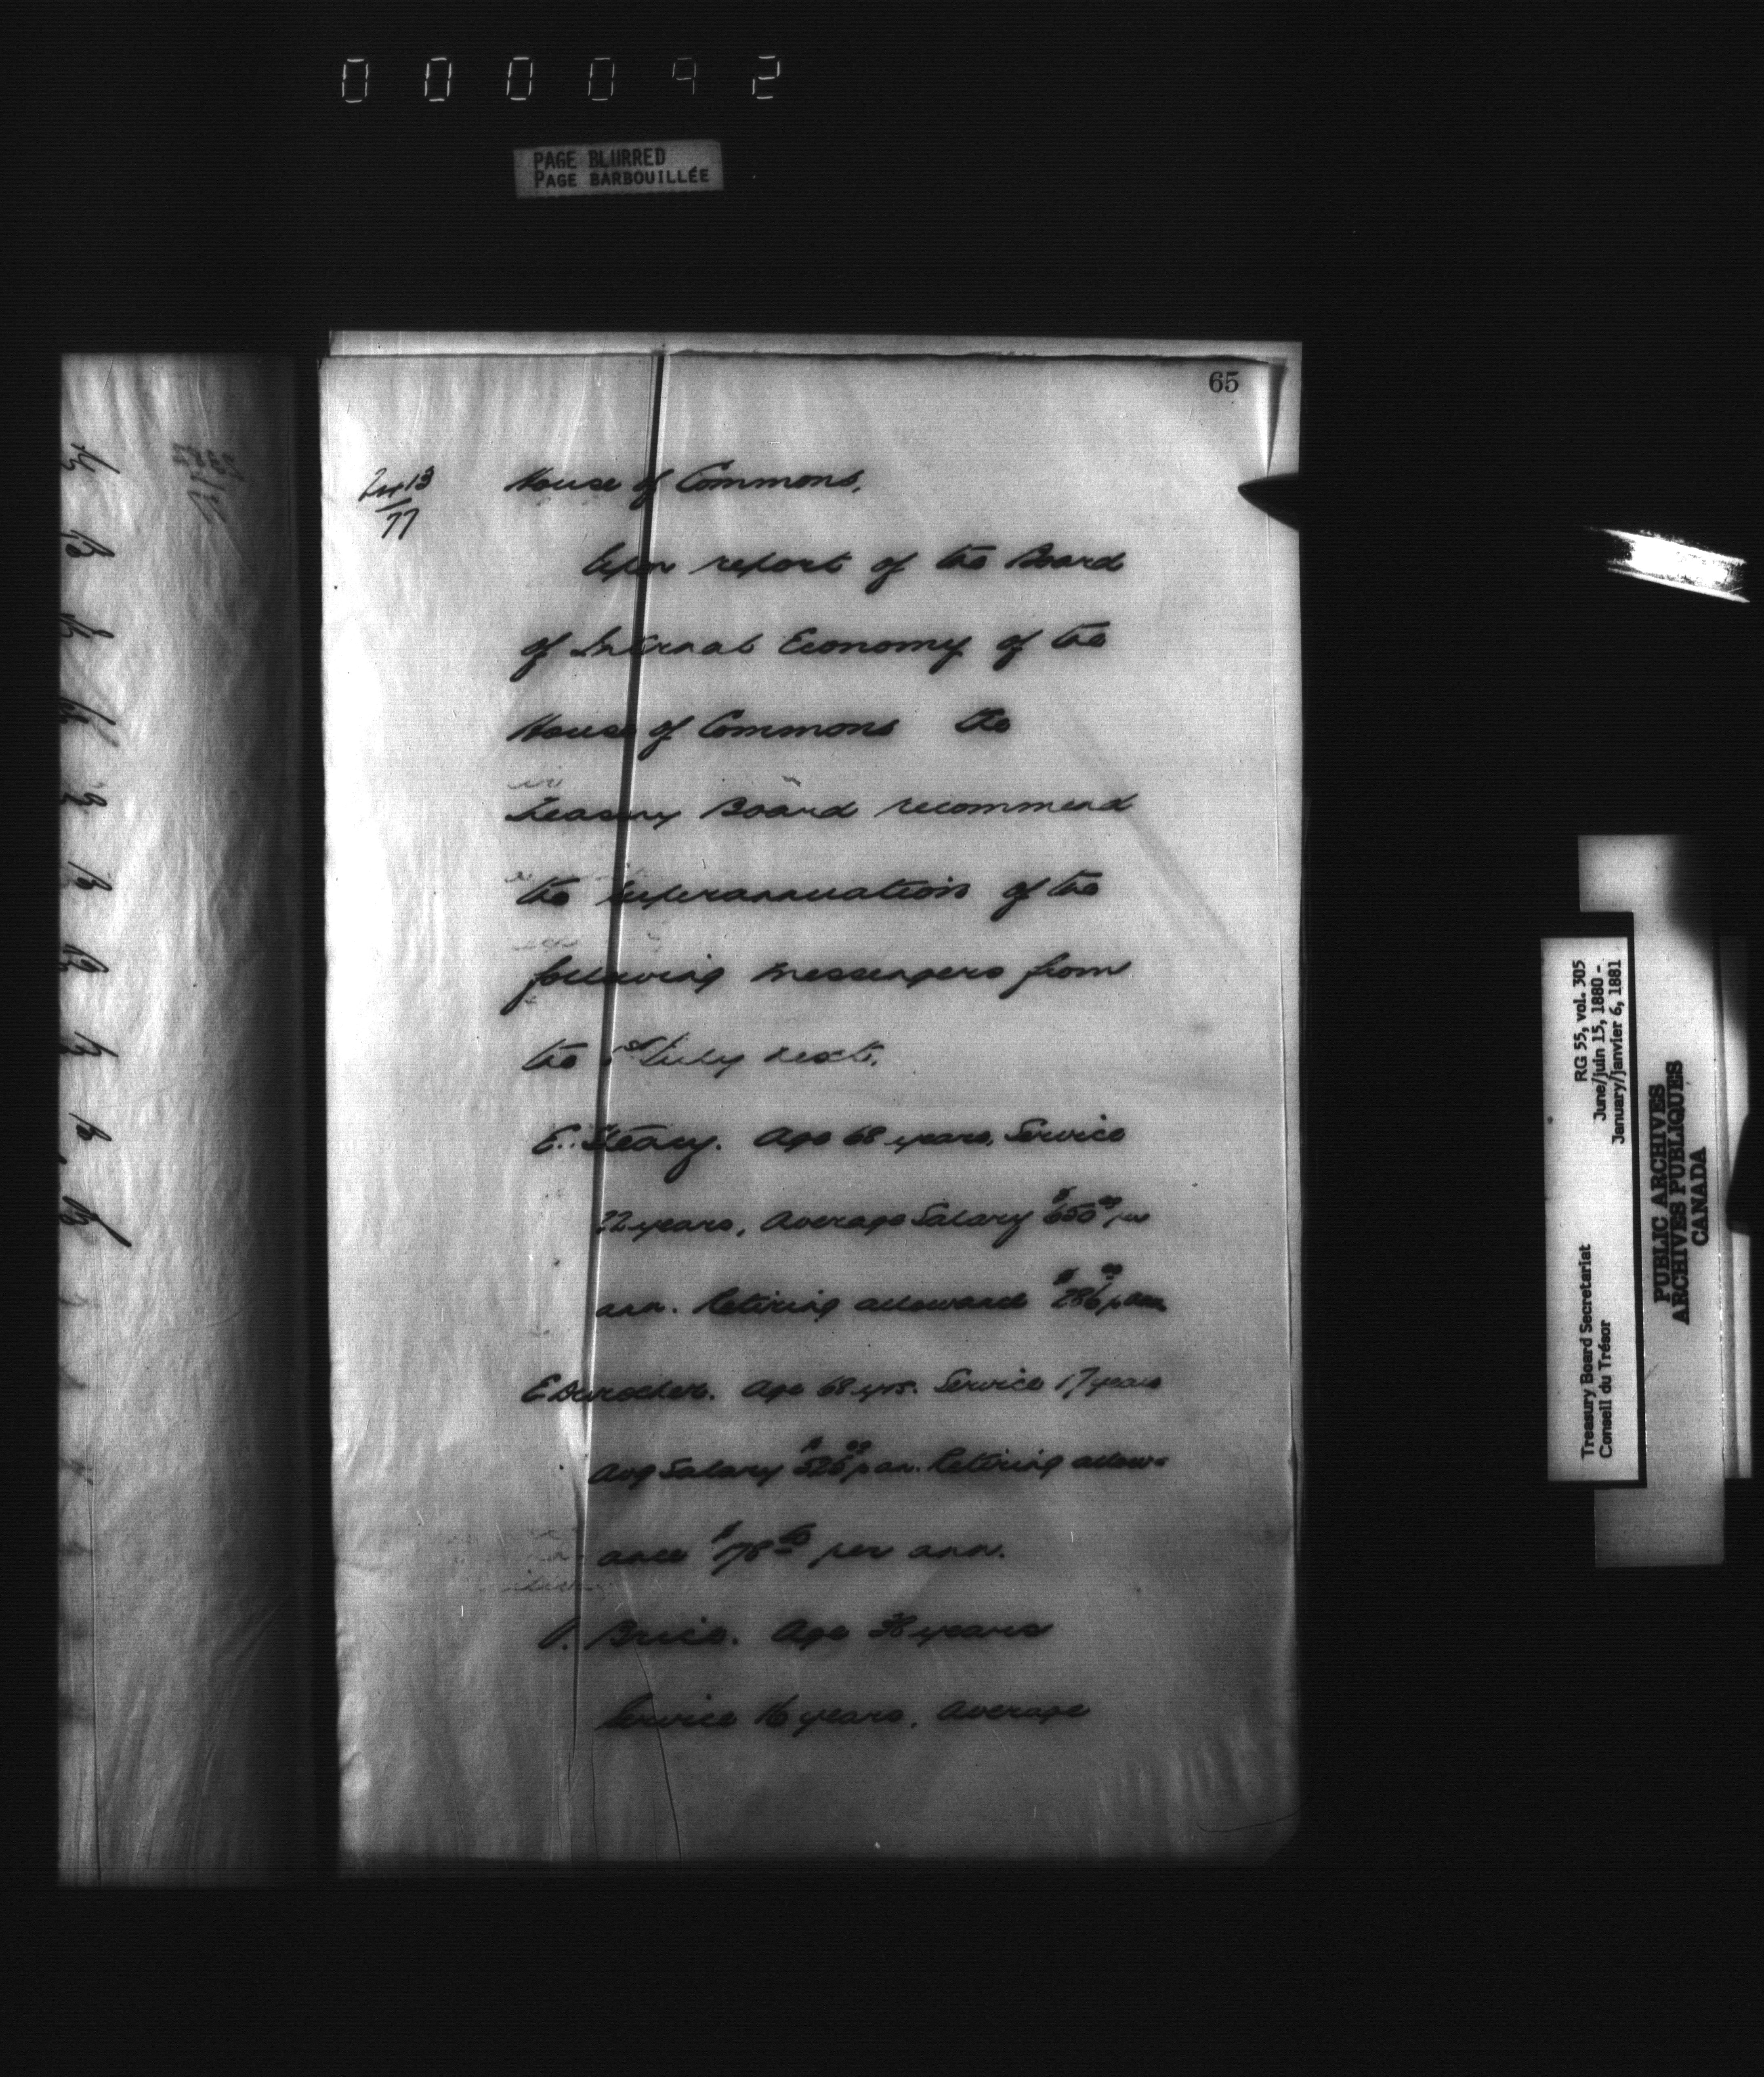 000042
PAGE BLURRED
PAGE BARBOUILLÉE
65
2413
77
House of Commons.
Upon report of the Board
of Internal Economy of the
House of Commons the
Treasury Board recommend
the superannuation of the
following Messengers from
the 1st July next.
E. Age 68 years, Service
22 years, Average Salary $650 00 per
ann. Retiring allowance $286 00 p ann
E Durocher. Age 68 yrs. Service 17 years
Avg Salary $525 00 p an. Retiring allow-
ance $178 50 per ann.
Brice. Age 38 years
Service 16 years, Average
Treasury Board Secretariat RG 55, vol. 305
Conseil du Trésor June/juin 15, 1880 -
January/janvier 6, 1881
PUBLIC ARCHIVES
ARCHIVES PUBLIQUES
CANADA